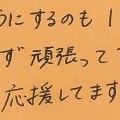 うにするのも
ず頑張って
応援してます